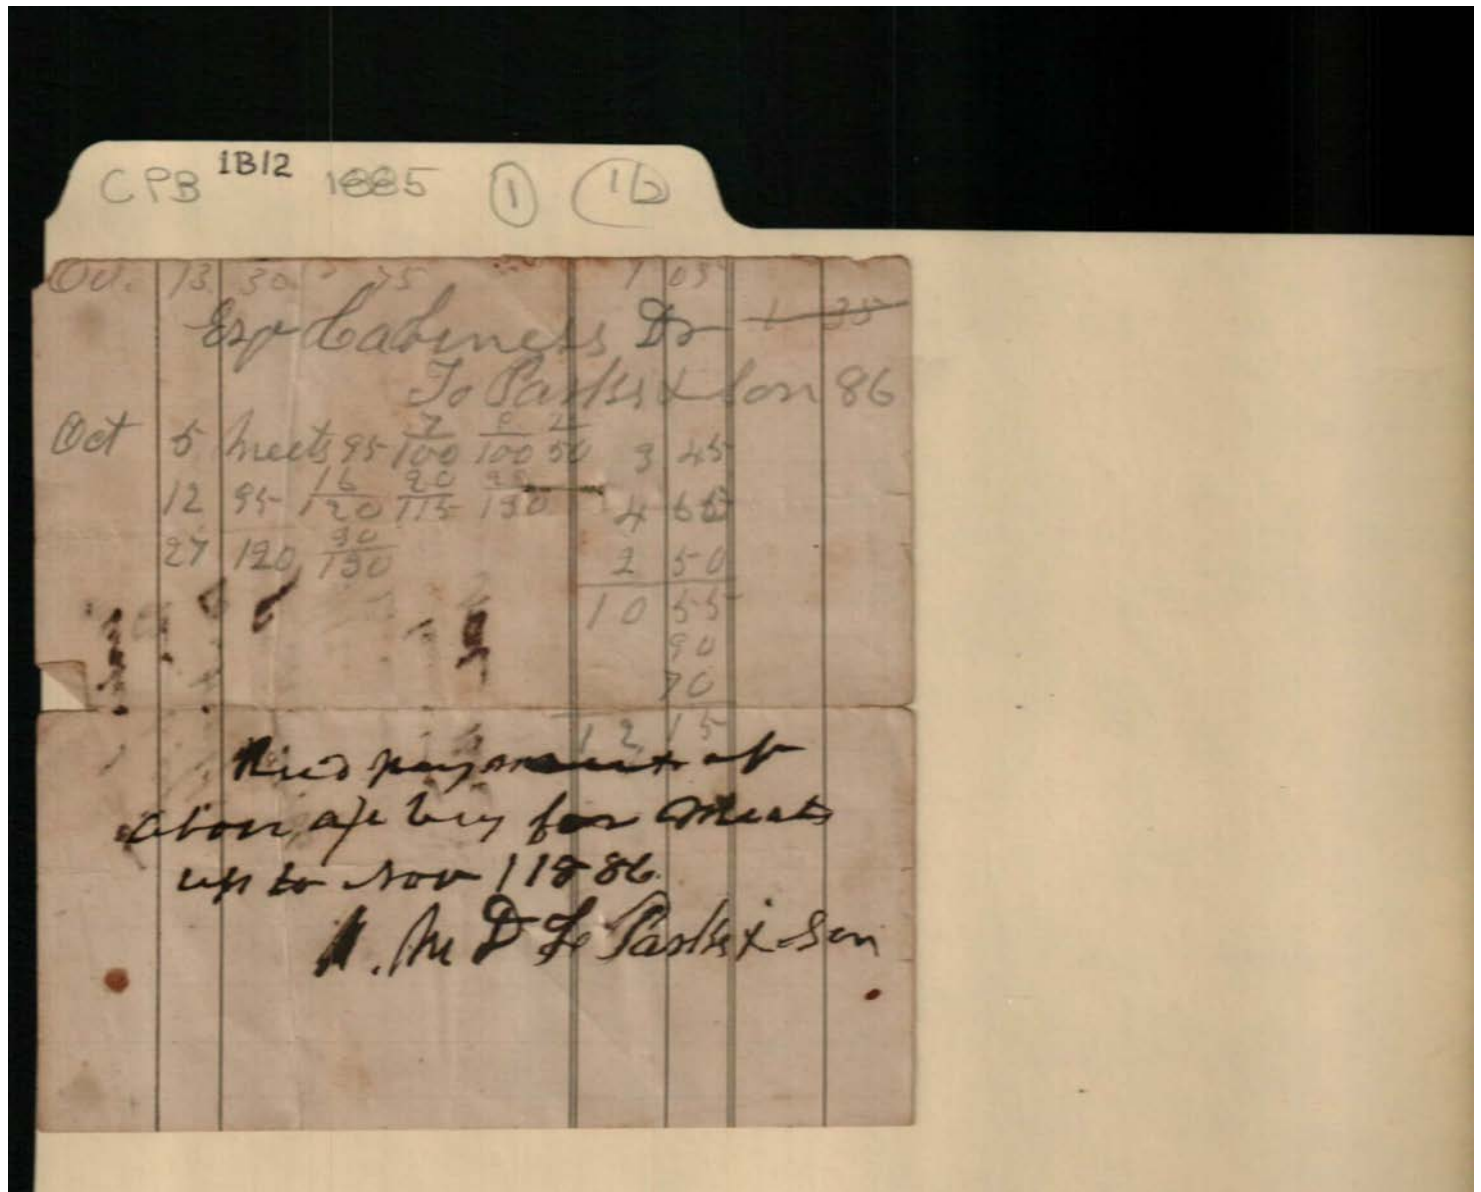 CPB 1B12 1885 1 1/2
Oct. 13. 30. 75 1 05
Esq Cabiness Dr 1 35
To Parks & Son 86
Oct 5 Meets 95 7/100 /100 /50 3 45
12 95 16/120 20/115 /130 4 60
27 120 30/130 2 50
10 55
90
70
12 15
Rec'd payment of
above a/c by for Meats
up to Nov 1 1886
M D L Parks & Son